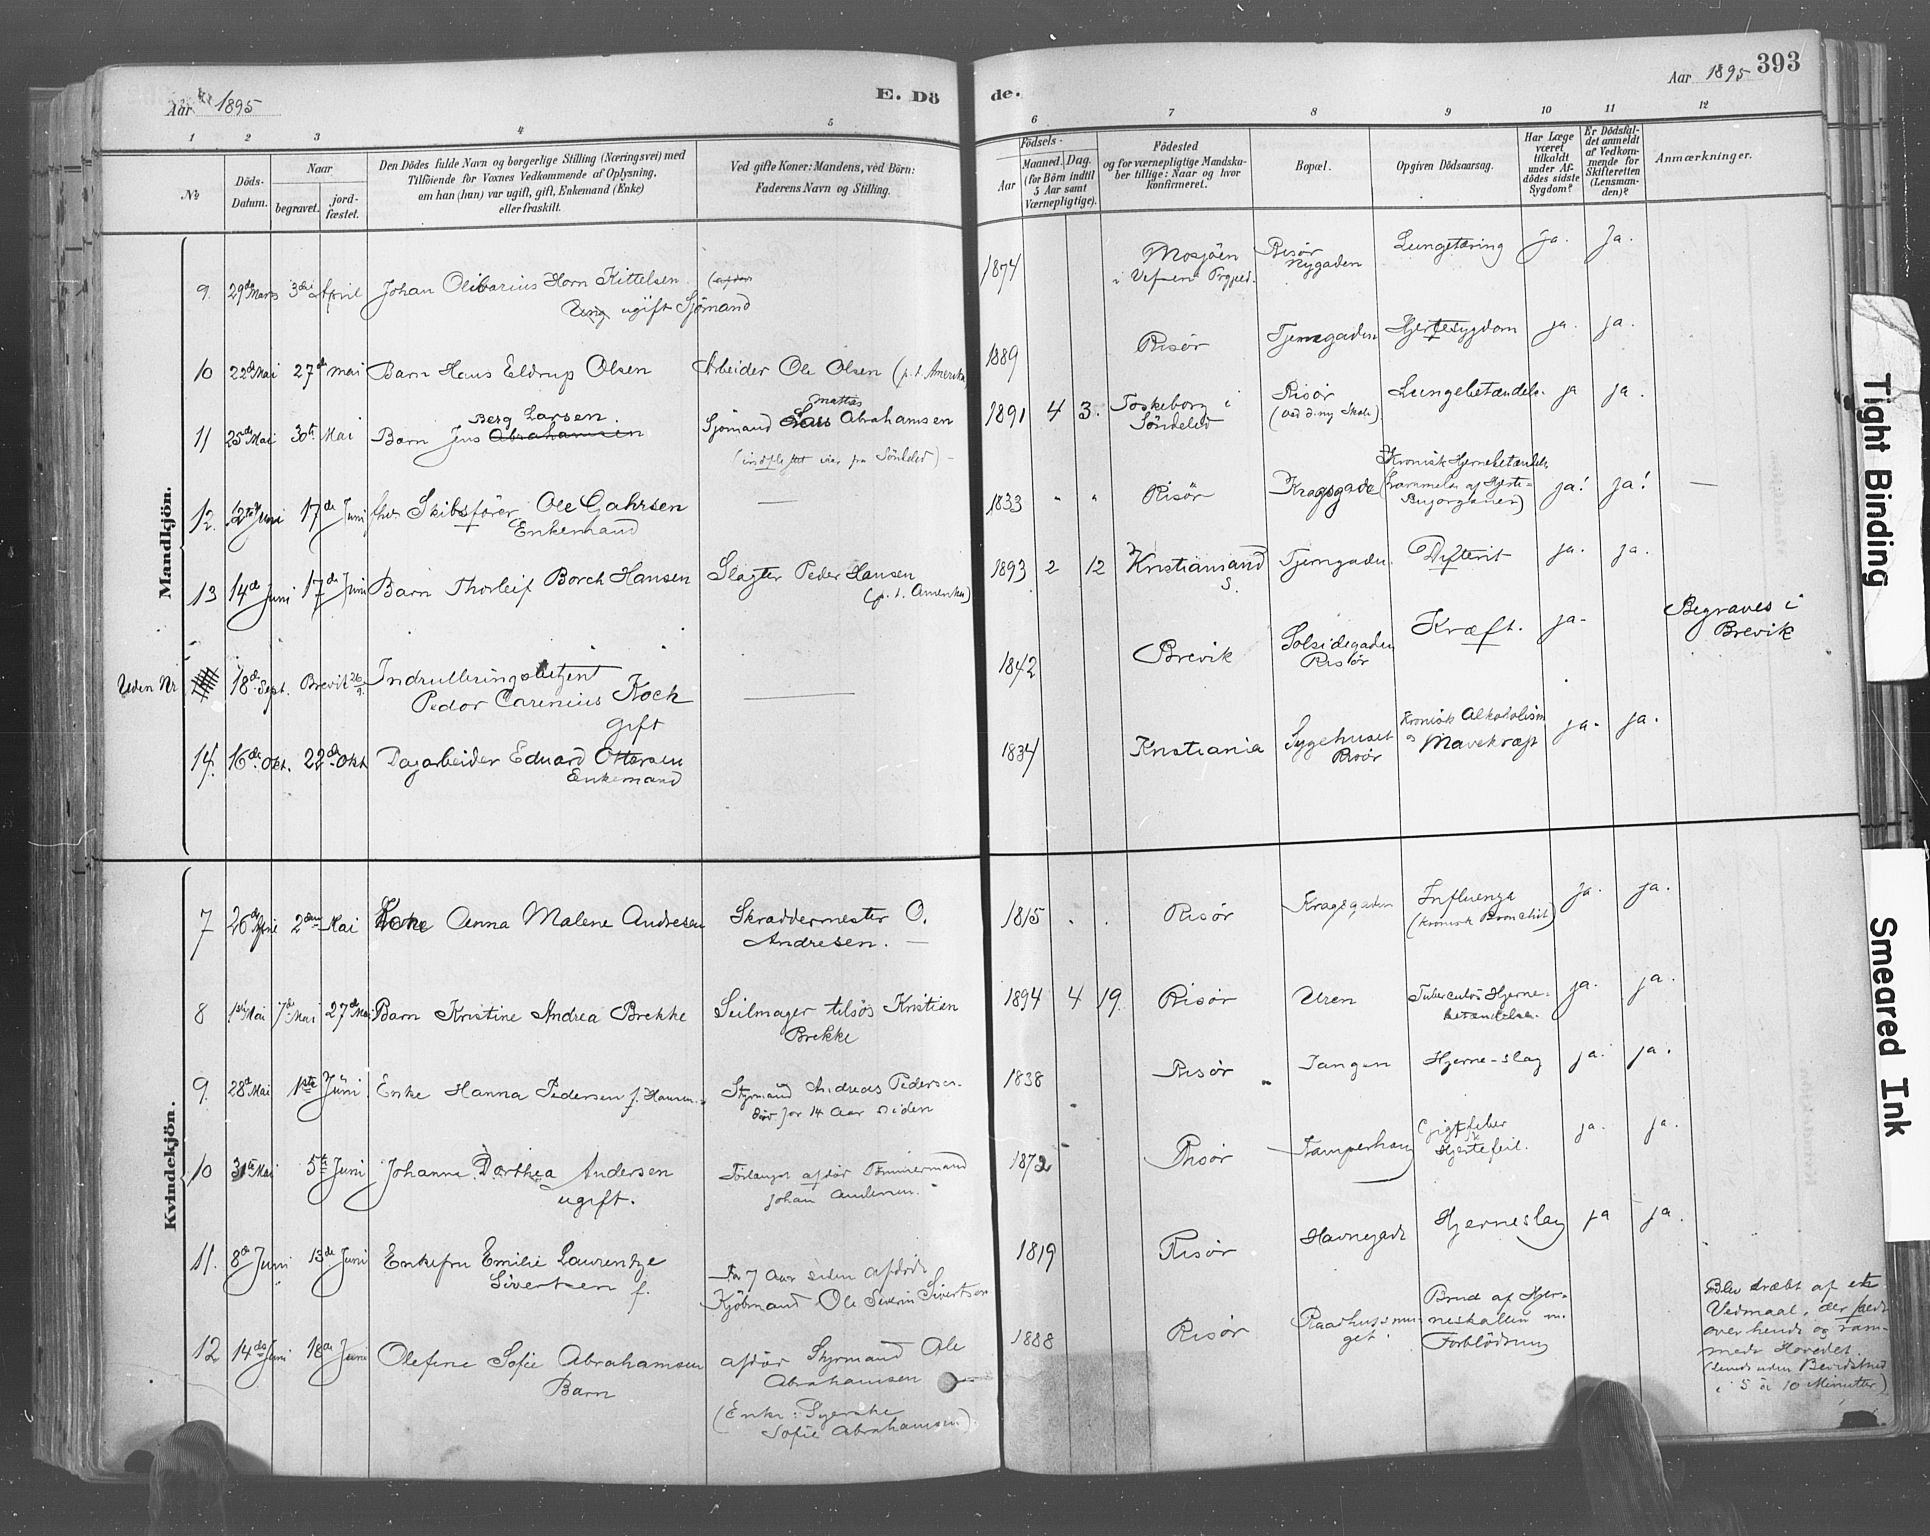 Aar 1895
E. Dö
de.
Aar 1895 393
1 2 3 4 5
6 7 8 9 10 11 12
No
Döds-
Datum.
Naar
begravet.
jord-
fæstet.
Den Dödes fulde Navn og borgerlige Stilling (Næringsvei) med
Tilföiende for Voxnes Vedkommende af Oplysning,
om han (hun) var ugift, gift, Enkemand (Enke)
eller fraskilt.
Ved gifte Koner: Mandens, ved Börn:
Faderens Navn og Stilling.
Födsels-
Aar
Maaned. Dag.
(for Börn indtil
5 Aar samt
Værnepligtige).
Födested
og for værnepligtige Mandska-
ber tillige: Naar og hvor
konfirmeret.
Bopæl.
Opgiven Dödsaarsag.
Har Læge
været
tilkaldt
under Af-
dödes sidste
Sygdom?
Er Dödsfal-
det anmeldt
af Vedkom-
mende for
Skifteretten
(Lensman-
den)?
Anmærkninger.
Mandkjön.
9. 29de Marts 3die April Johan Olivarius Horn Kittelsen
ugift Sjömand
1874 Mosjöen
i Vefsen
Risør
Nygaden
Lungetæring ja. Ja.
10 22de Mai 27de Mai Barn Hans Eldrup Olsen Arbeider Ole Olsen (p. t. Amerika)
1889 Risør Tjerngaden Hjertesygdom ja. ja.
11 25de Mai 30te Mai Barn Jens Abrahamsen
Berg Larsen.
Sjömand Lars Abrahamsen
Mattas
(indflyttet iaar fra Söndeled) -
1891 4 3. i
Söndeled
Risør
(ved d. ny Skole)
Lungebetændelse ja ja.
12. 12te Juni 17de Juni fhv. Skibsförer Ole Gahrsen
Enkemand
—
1833 " " Risør Kragsgade Kronisk Hjernebetændelse
ja! ja! —
13 14de Juni 17de Juni Barn Thorleif Borch Hansen Slagter Peder Hansen
(p. t. Amerika)
1893 2 12 Kristiansand
S.
Tjerngaden. Difterit ja. ja.
Uden Nr 18de Sept. Brevik 26/9.
Peder Carenius Koch
gift
1842 Brevik Solsidegaden
Risør
Kræft. ja.
Begraves i
Brevik
14. 16de Okt. 22de Okt Dagarbeider Edvard Ottersen
Enkemand
1834 Kristiania Sygehuset
Risør
Kronisk Alkoholism
og Mavekræft
ja. ja.
Kvindekjön.
7 26de April 2den Mai Kone Anna Malene Andresen Skræddermester O.
Andresen. —
1815 . . Risør Kragsgaden Influenza
(kronisk Bronchit)
ja. ja.
8 1ste Mai 7de Mai 27de Mai Barn Kristine Andrea Brekke Seilmager tilsös Kristian
Brekke
1894 4 19. Risør Uren Tuberculös Hjerne-
betændelse.
ja. ja.
9. 28de Mai 1ste Juni Enke Hanna Pedersen f. Hansen. Styrmand Andreas Pedersen.
död for 14 Aar siden
1838 Risør Tangen Hjerne-slag ja. ja.
10 31te Mai 5te Juni Johanne Dorthea Andersen
ugift.
Forlængst afdör Tömmermand
Johan Andersen.
1872 Risør Kamperhaug Gigtfeber
Hjertefeil.
ja. ja.
11. 8de Juni 13de Juni Enkefru Emilie Laurentze
Sivertsen f.
For 7 Aar siden afdöde
Kjöbmand Ole Severin Sivertsen
1819 Risør Havnegade Hjerneslag ja ja.
12 14de Juni 18de Juni Olefine Sofie Abrahamsen
Barn
afdör Styrmand Ole
Abrahamsen
(Enke: Syerske
Sofie Abrahamsen)
1888 Risør
Brud af Hjer-
neskallen m.
Forblödning
Blev dræbt af en
Vedmaal, der faldt
over hende og ram-
mede Hovedet.
(levede uden Bevidsthed
i 5 a 10 Minutter)
Tight Binding
Smeared Ink